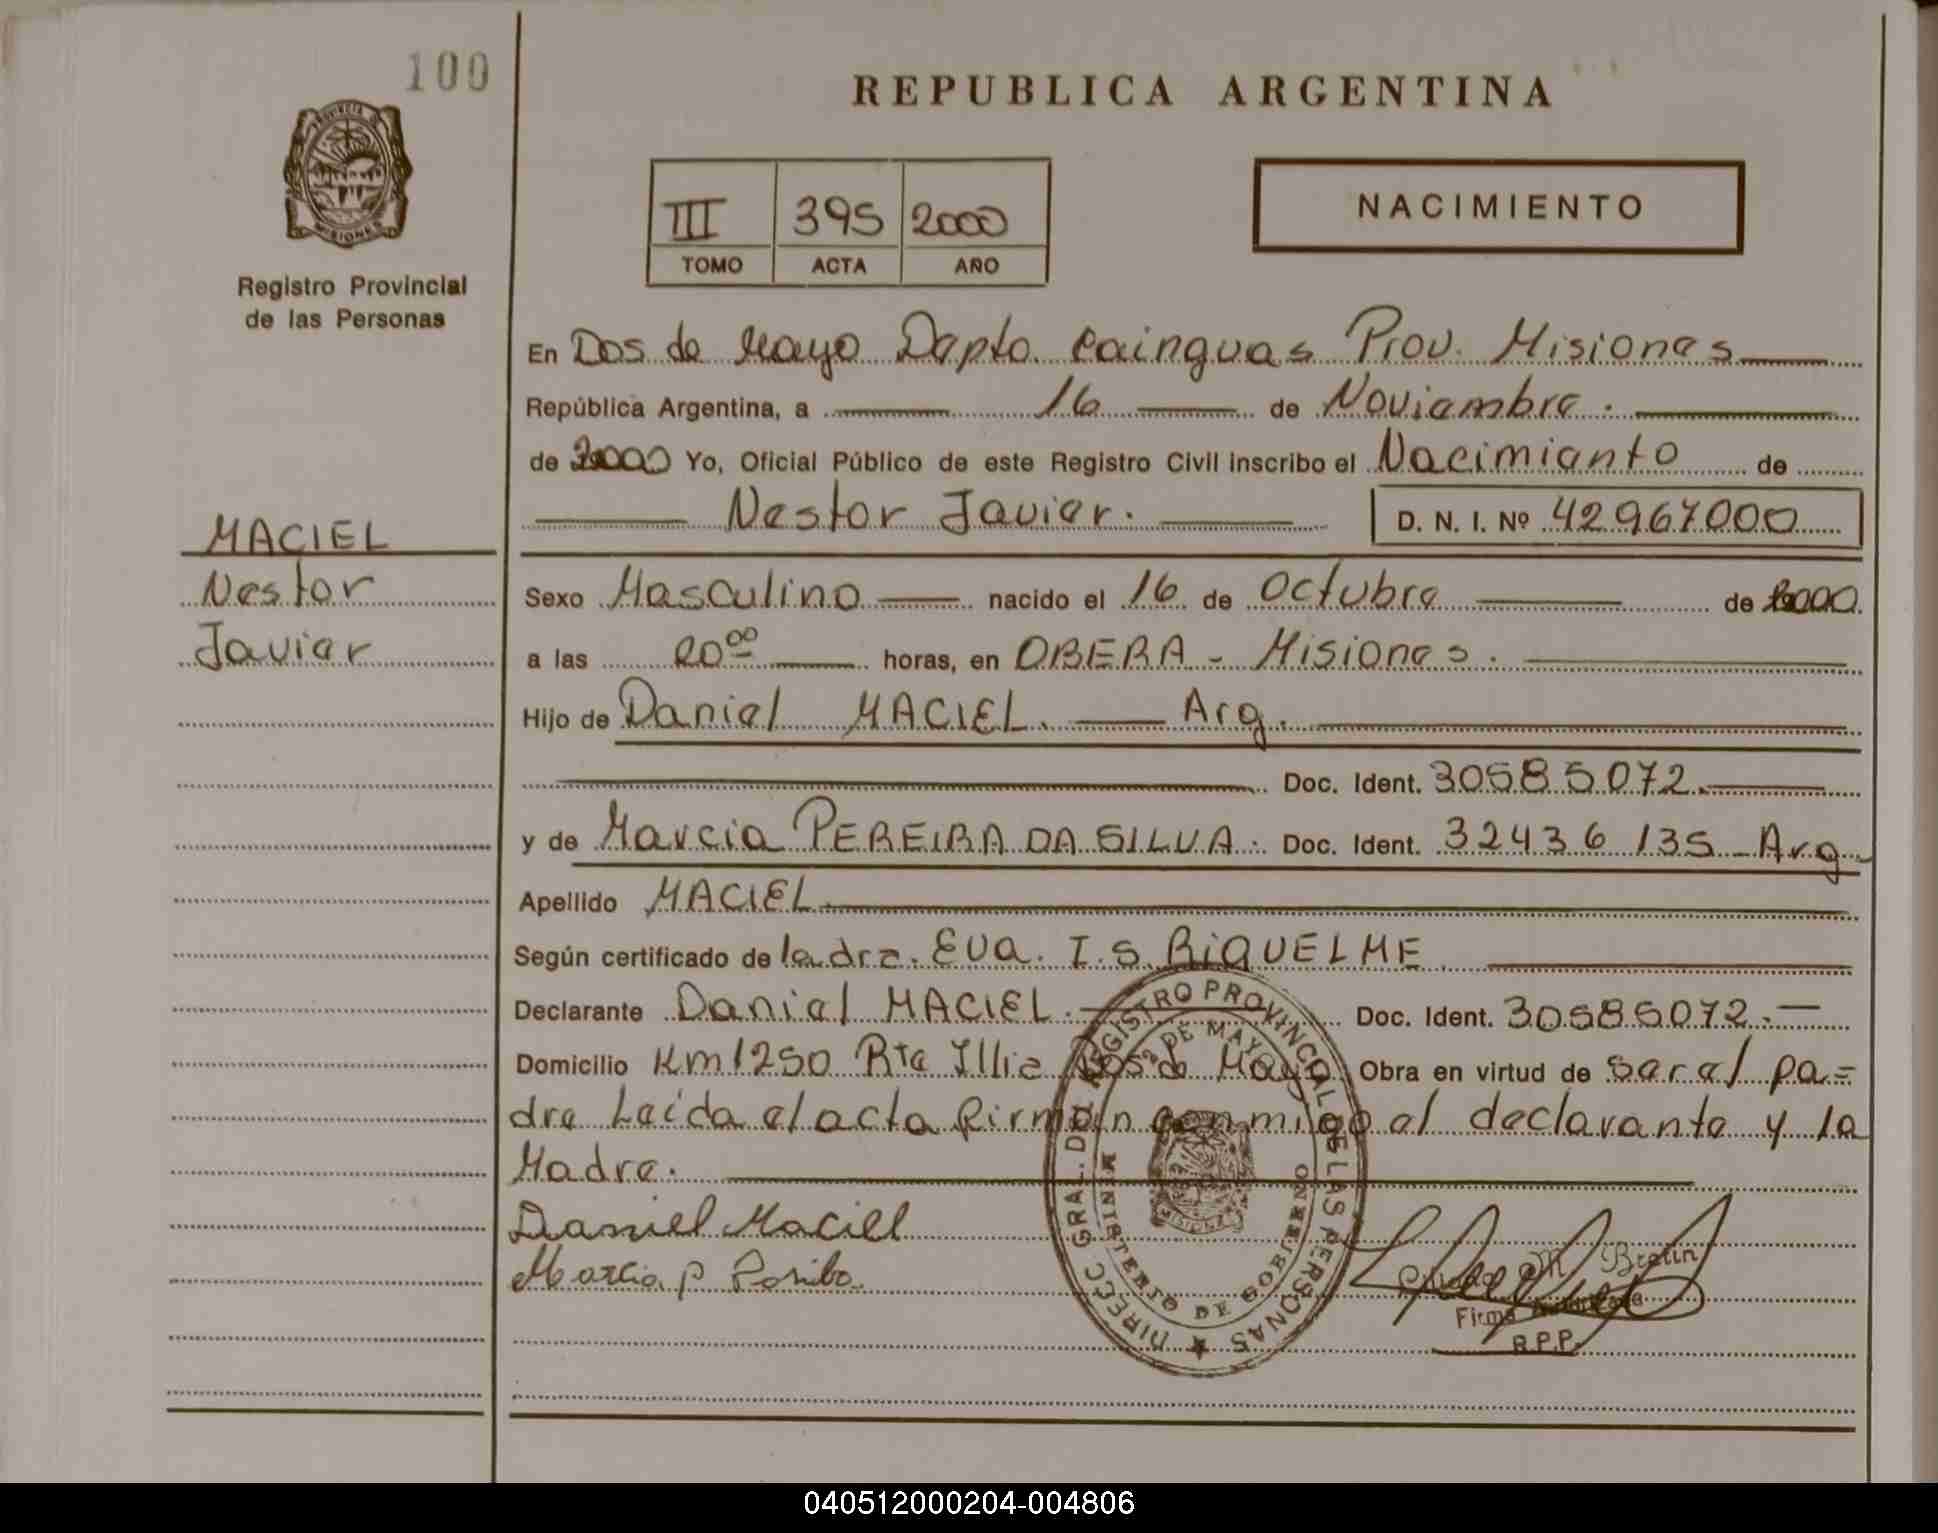 100
REPUBLICA ARGENTINA
PROVINCIA DE
MISIONES
Registro Provincial
de las Personas
III 395 2000
TOMO ACTA AÑO
NACIMIENTO
En Dos de Mayo Depto. Cainguas Prov. Misiones
República Argentina, a 16 de Noviembre.
de 2000 Yo, Oficial Público de este Registro Civil inscribo el Nacimiento de
Nestor Javier. D. N. I. Nº 42967000
MACIEL
Nestor
Javier
Sexo Masculino nacido el 16 de Octubre de 2000
a las 20 00 horas, en OBERA - Misiones.
Hijo de Daniel MACIEL. Arg.
Doc. Ident. 30585072.
y de Marcia PEREIRA DA SILVA. Doc. Ident. 32436135 - Arg.
Apellido MACIEL.
Según certificado de la dra. Eva. I. S. RIQUELME
Declarante Daniel MACIEL. Doc. Ident. 30585072.
Domicilio Km 1250 Rta Illia Dos de Mayo Obra en virtud de ser el pa=
dre Leída el acta firman conmigo el declarante y la
Madre.
Daniel Maciel
Marcia P
DIRECC GRAL. DEL REGISTRO PROVINCIAL DE LAS PERSONAS
2ª DE MAYO
MISIONES
MINISTERIO DE GOBIERNO
Firma Autorizada
R.P.P.
040512000204-004806